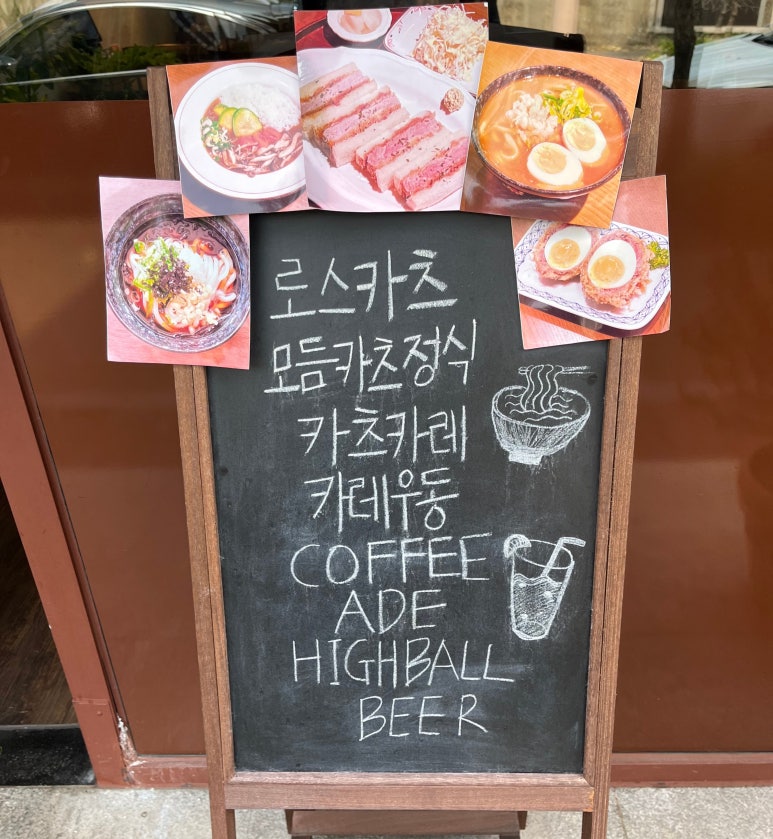 로스카츠
모듬카츠정식
카츠카레
카레우동
COFFEE
ADE
HIGHBALL
BEER